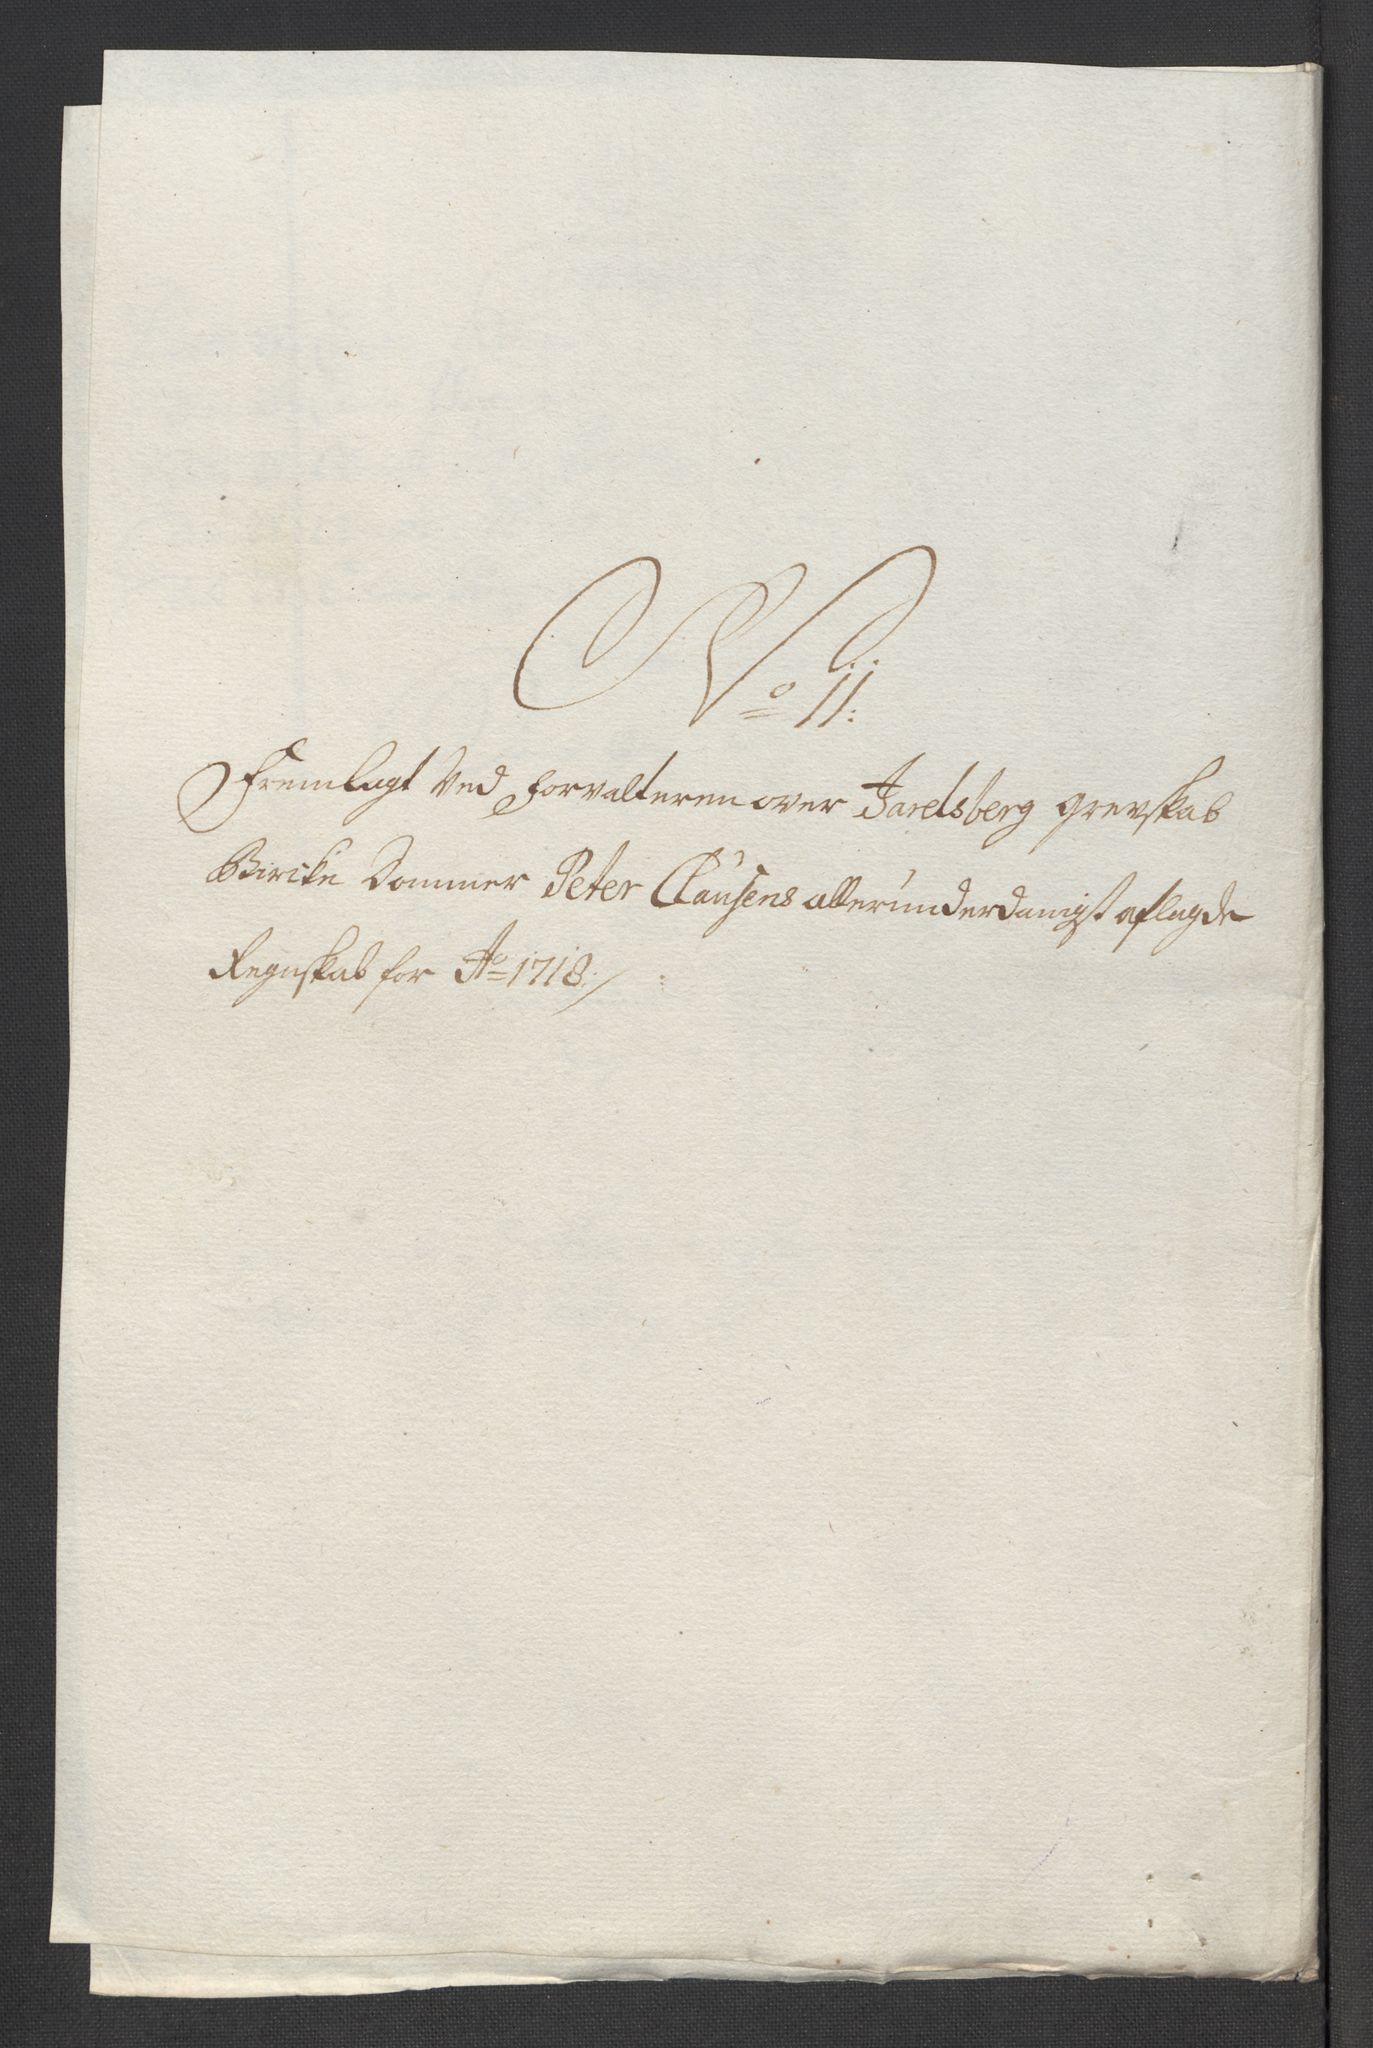 No 11:
Fremlagt Ved Forvalteren over Jarelsberg Grevskab
Bircke Dommer Peter Clausens allerunderdanigst aflagde
Regnskab for Ao 1718./